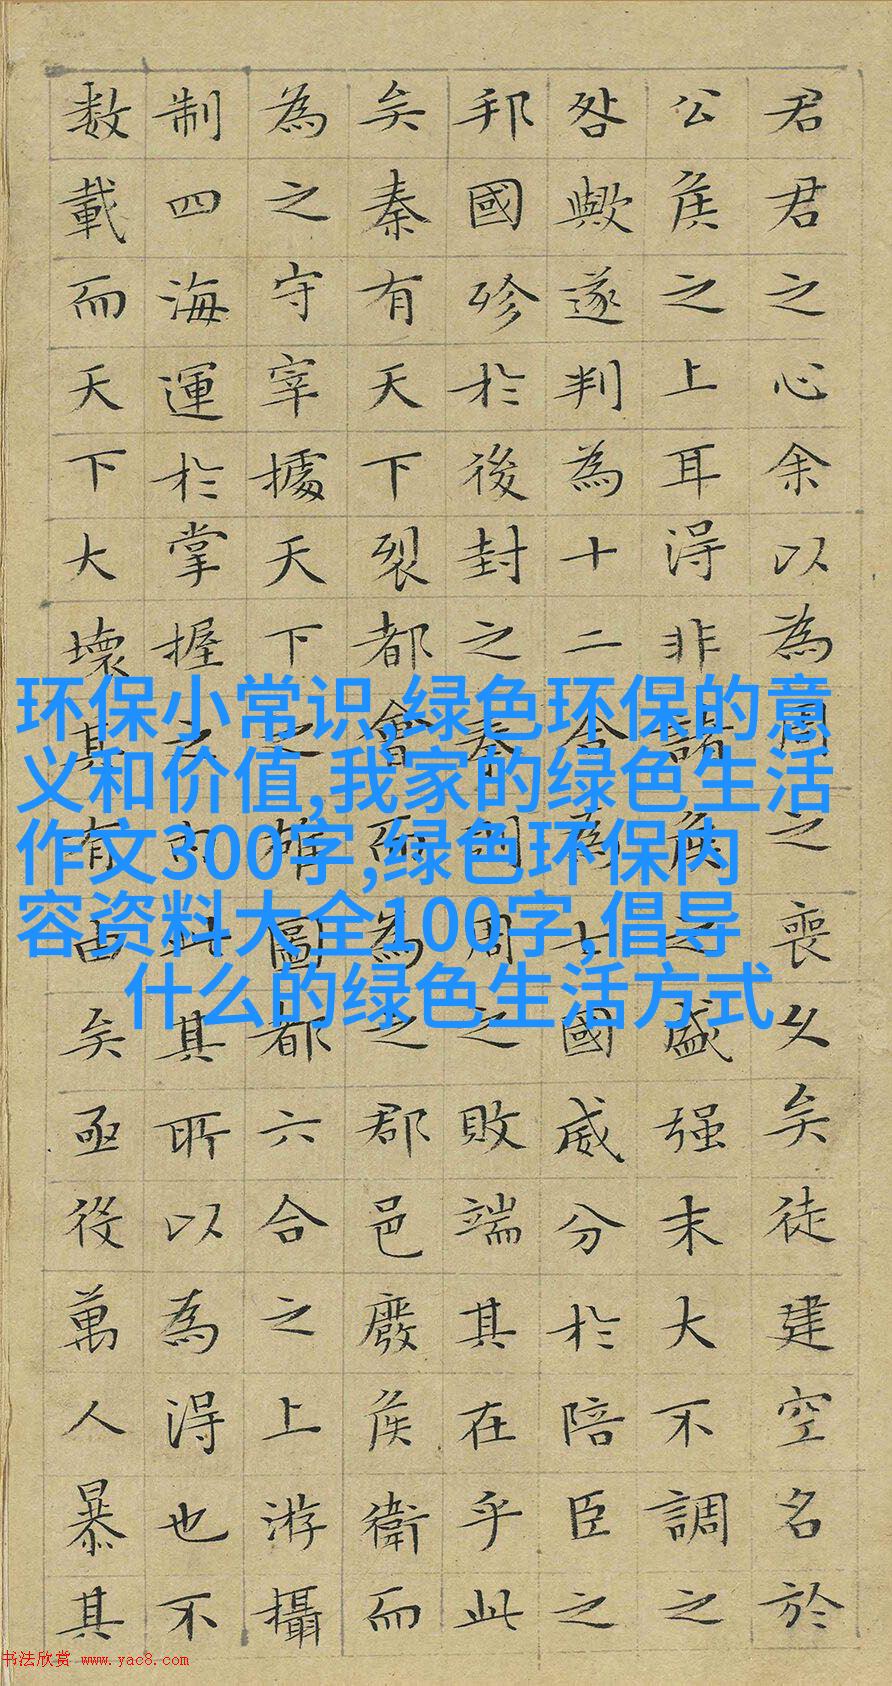 君君之心余以為周之喪久矣徒建空名於
公侯之上耳得非諸侯之盛强末大不調之
咎歟遂判為十二合為七國威分於陪臣之
邦國殄於後封之秦則周之敗端其在乎此
矣秦有天下裂都會而為之郡邑廢侯衛而
為之守宰據天下之雄圖都六合之上游攝
制四海運於掌握之内此其所以為得也不
数載而天下大壞其有由矣亟役萬人暴其
环保小常识,绿色环保的意
义和价值,我家的绿色生活
作文300字,绿色环保内
容资料大全100字,倡导
什么的绿色生活方式
书法欣赏 www.yac8.com